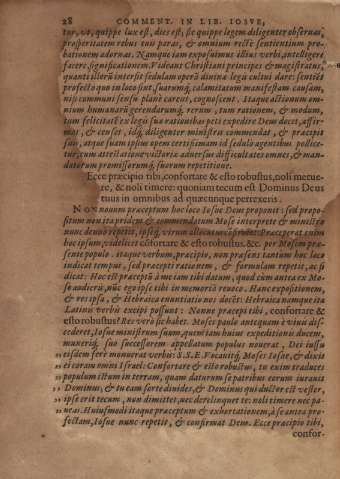 28 COMMENT. IN LIB. IOSVE,
tur, ut, quippe lux est, dies est, sic quippe legem diligenter obseruas,
prosperitatem rebus tuis paras, & omnium recte sentientium pro-
bationem adornas. Namque iam exposuimus illius verbi, intelligere
facere, significationem. Videant Christiani principes & magistratus,
quanti illorum intersit sedulam opera diuinae legis cultui dare: sentiet
profecto quo in loco sint, suarumque calamitatum manifestam causam,
nisi communi sensu plane careat, cognoscent. Itaque actionum om-
nium humanarum gerendarumque rerum, tum rationem, & modum,
tum felicitatem ex legis suae rationibus peti expedire Deus docet, affir-
mat, & censet, idque diligenter ministris commendat, & praecipit
suis, atque suam ipsius opem certissimam id sedulo agentibus pollice-
tur, cum attestatione victoriae aduersus difficultates omnes, & man-
datorum promissorumque suorum repetitione.
Ecce praecipio tibi, confortare & esto robustus, noli metue-
re, & noli timere: quoniam tecum est Dominus Deus
tuus in omnibus ad quaecunque perrexeris.
NON nouum praeceptum hoc loco Iosue Deus proponit: sed propo-
situm non ita pridem & commendatum Mose interprete & ministro
nunc denuo repetit, ipseque virum allocutus
hoc ipsum, videlicet confortare & esto robustus. &c. per Mosem prae-
sente populo. itaque verbum, praecipio, non praesens tantum hoc loco
indicat tempus, sed praecepti rationem, & formulam repetit, ac si
dicat: Hoc est praeceptum a me iam tibi datum, quod cum antea ex Mo-
se audieris, nunc ego ipse tibi in memoriam reuoco. Hanc expositionem,
& res ipsa, & Hebraica enuntiatio nos docet: Hebraica namque ita
Latinis verbis excipi possunt: Nonne praecepi tibi, confortare &
esto robustus? Res vero sic habet. Moses paulo antequam e viuis dis-
cederet, Iosue ministrum suum, quem iam huius expeditionis ducem,
munerisque sui successorem appellatum populus nouerat, Dei iussu
eisdem fere monuerat verbis: S.S.E. Vocauitque Moses Iosue, & dixit
ei coram omni Israel: Confortare & esto robustus, tu enim introduces
populum istum in terram, quam daturum se patribus eorum iurauit
Dominus, & tu eam sorte diuides, & Dominus qui ductor est vester,
ipse erit tecum, non dimittet, nec derelinquet te: noli timere nec pa-
ueas. Huiusmodi itaque praeceptum & exhortationem, a se antea pro-
fectam, Iosue nunc repetit, & confirmat Deus. Ecce praecipio tibi,
confor-